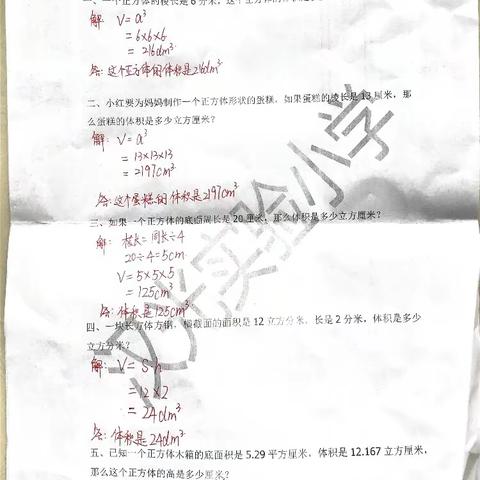 一、一个正方体的棱长是6分米，这个正方体的体积是
解： V=a³
=6×6×6
=216dm³
答：这个正方体的体积是216dm³
二、小红要为妈妈制作一个正方体形状的蛋糕，如果蛋糕的棱长是13厘米，那
么蛋糕的体积是多少立方厘米？
解： V=a³
=13×13×13
=2197cm³
答：这个蛋糕的体积是2197cm³
三、如果一个正方体的底面周长是20厘米，那么体积是多少立方厘米？
解： 棱长=周长÷4
20÷4=5cm
V=5×5×5
=125cm³
答：体积是125cm³
四、一块长方体方钢，横截面的面积是12立方分米，长是2分米，体积是多少
立方分米？
解： V=Sh
=12×2
=24dm³
答：体积是24dm³
五、已知一个正方体木箱的底面积是5.29平方厘米，体积是12.167立方厘米，
那么这个正方体的高是多少厘米？
实验小学